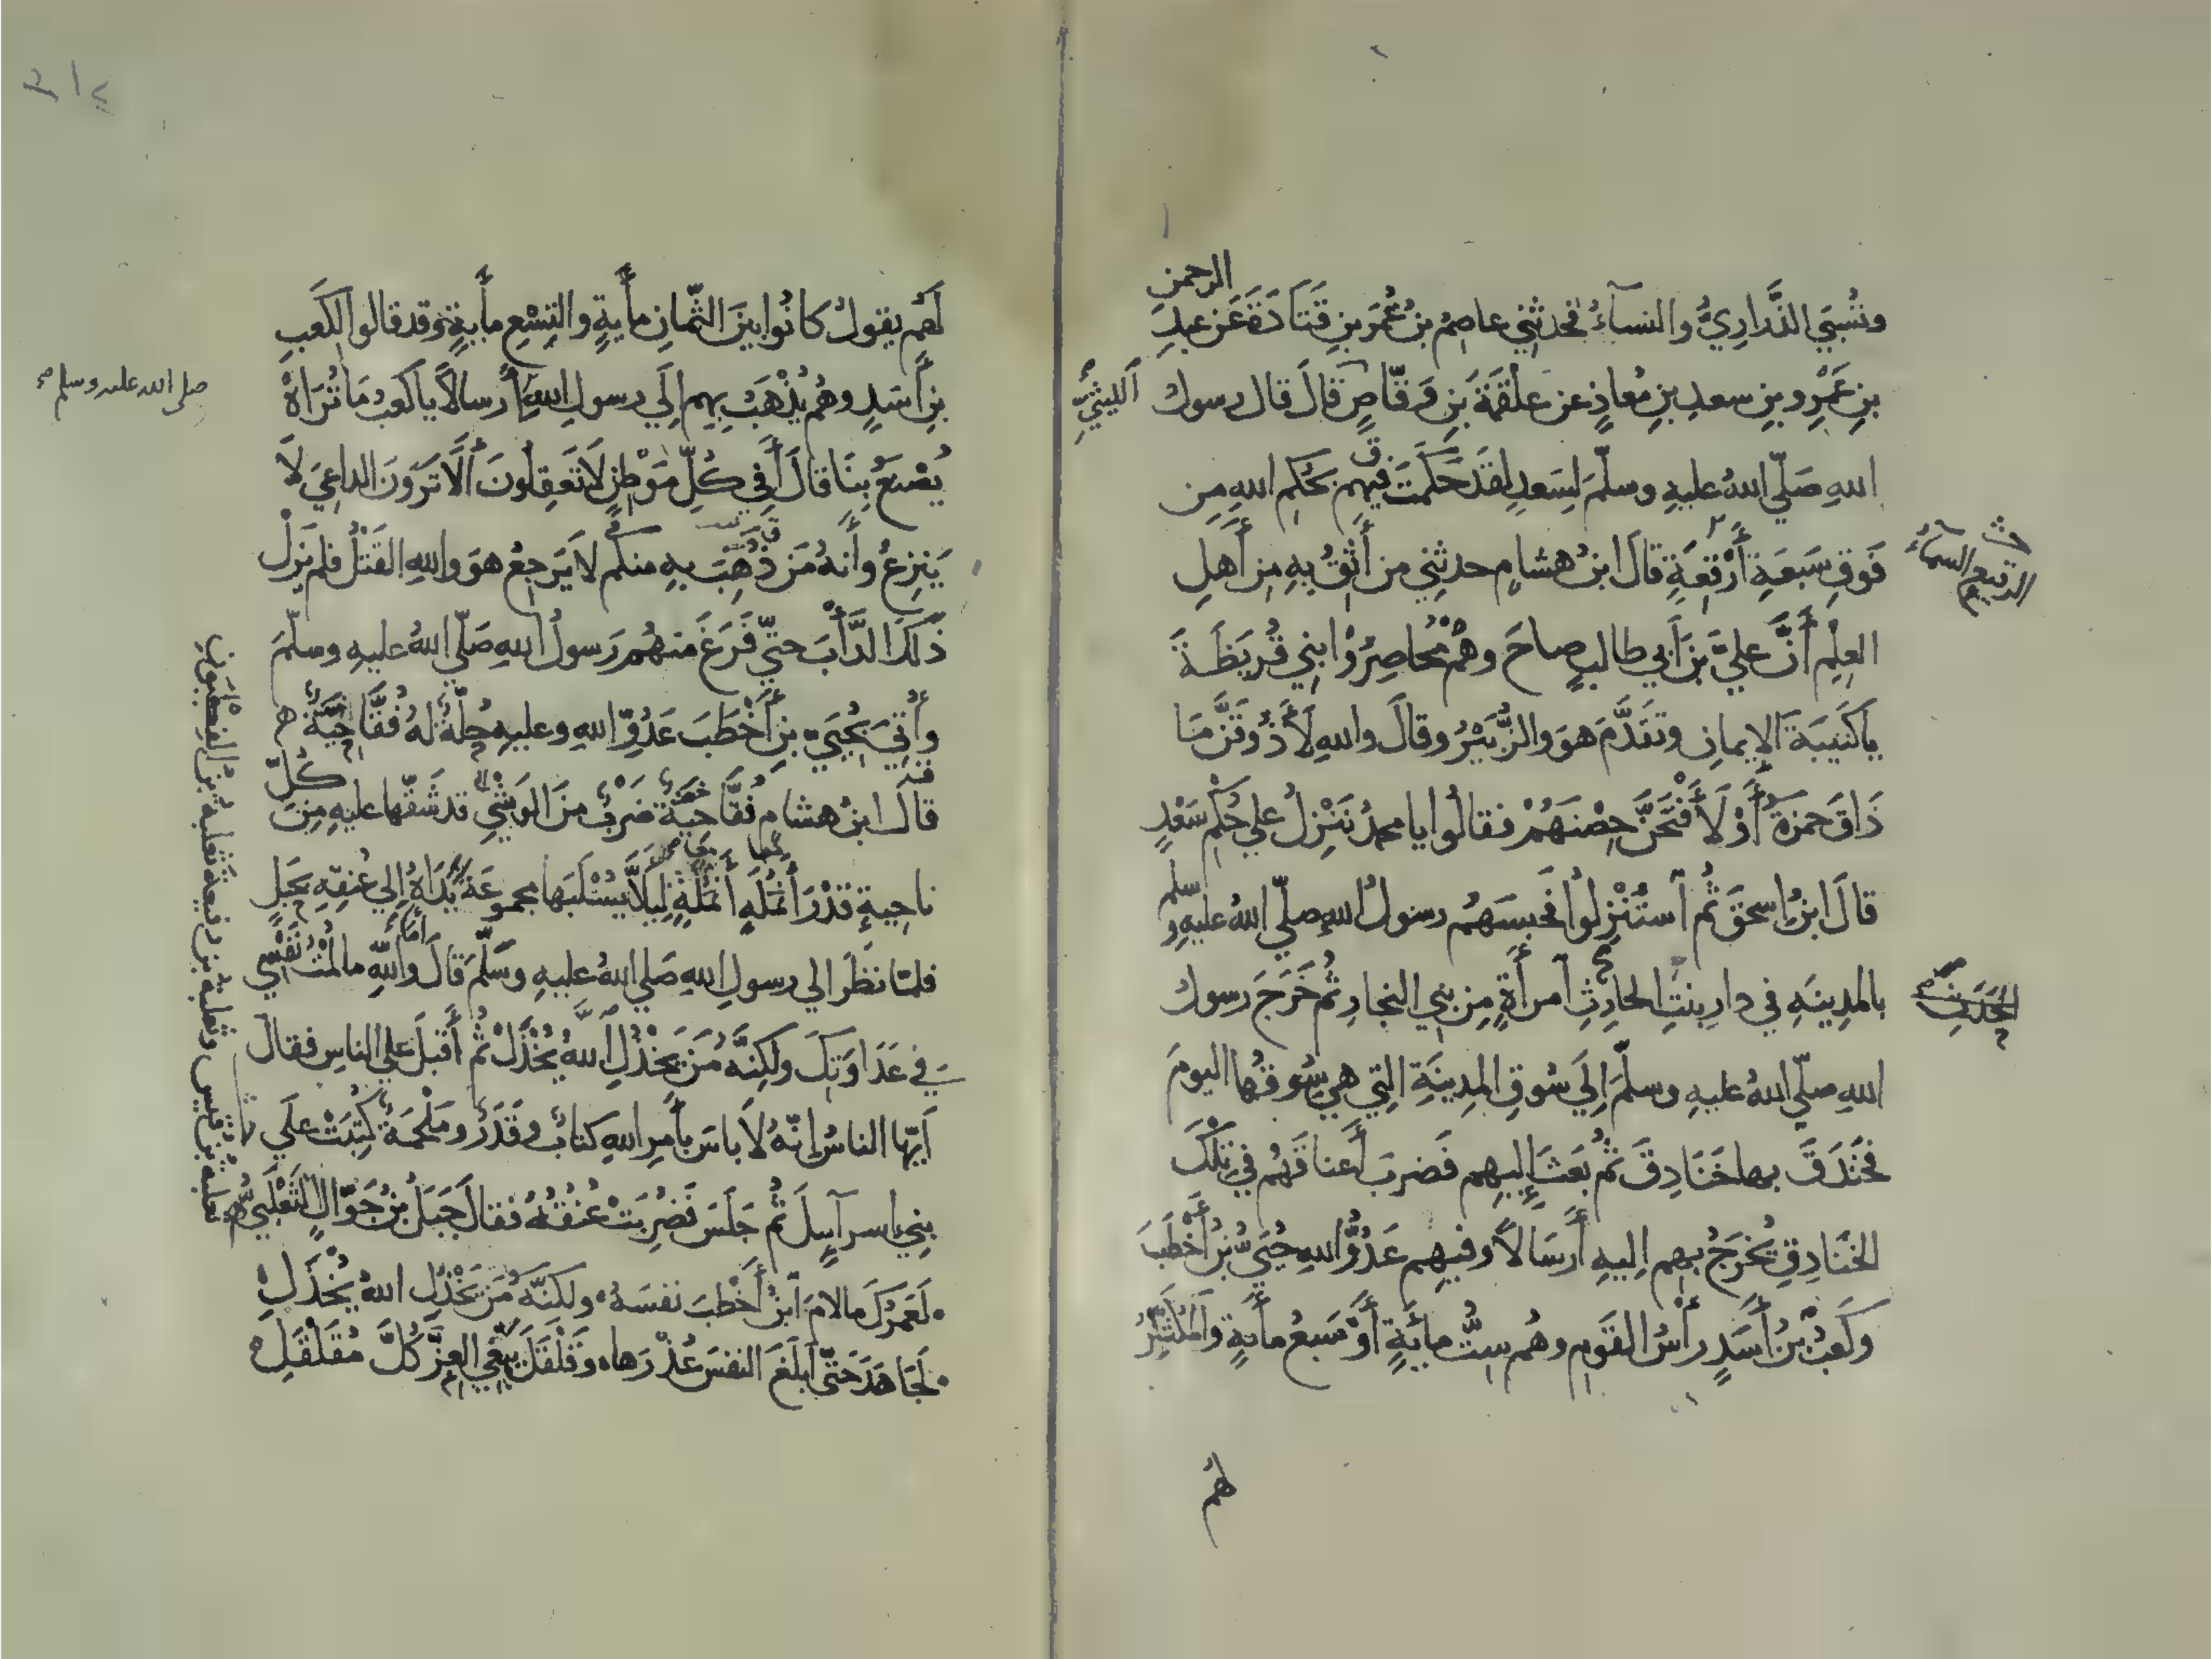 وتُسْبَي الذَّرَارِيُّ والنسآءُ فحدثني عاصِمُ بنُ عُمَرَ بنِ قَتَادَةَ عَن عبدِ
الرحمن
بنِ عَمْرِو بنِ سعدِ بنِ مُعاذٍ عن علقمَةَ بَنِ وَقّاصٍ قالَ قال رسولُ
اَلليثِيِّ
اللهِ صَلّي اللهُ عليهِ وسلّمَ لِسَعدٍ لقَد حَكَمتَ فيهِم بحُكمِ اللهِ مِن
فَوقِ سَبعَةِ أَرْقِعَةٍ قالَ ابنُ هشامٍ حدثني من أَثِقُ بِهِ مِن أَهلِ
الرقيع السمآءُ
العِلْمِ أَنَّ عليَّ بنَ أَبي طالبٍ صاحَ وهُمْ مُحاصِرُوْا بني قُرَيظَةَ
يا كَتيبَةَ الإيمانِ وتقَدَّمَ هوَ والزُّبَيْرُ وقالَ واللهِ لَأَذُوقَنَّ مَا
ذَاقَ حمزةُ أَوْ لَأَفْتَحَنَّ حِصْنَهُمْ فقالُوا يا محمدُ نَنْزِلُ علي حُكْمِ سَعْدٍ
قالَ ابنُ إسحقَ ثُم اَستُنْزِلُوا فحبسَهُم رسولُ اللهِ صلّي اللهُ عليهِ و
سلم
بالمدِينَهِ في دارِ بنتِ الحارِثِ اَمرأَةٍ مِن بني النجارِ ثُم خَرَجَ رسولُ
اللهِ صلّي اللهُ عليهِ وسلّمَ إلَي سُوقِ المدِينَةِ التِي هي سُوقُها اليومَ
فخَندَقَ بها خَنَادِقَ ثُم بَعَثَ إليهِم فَضربَ أَعناقَهُم في تلْكَ
الخنَادِقِ يُخرَجُ بهِم إليهِ أَرسَالاً وفيهِم عَدُوُّ اللهِ حُيَيُّ بْنُ أَخْطَبَ
وكَعبُ بْنُ أَسَدٍ رأْسُ القَومِ وهُم سِتُّ مائَةٍ أَوْ سَبعُ مأيةٍ والمُكثِّرُ
هُم
لَهُم يقولُ كانُوا بينَ الثّمانِ مأيةٍ والتِسْعِ مأيةٍ وقد قالوا لكَعبِ
بنِ أَسَدٍ وهُم يُذْهَبُ بِهِم إلَي رسولِ اللهِ أَرسالاً يا كَعبُ مَا تُرَاهُ
صلى الله عليه وسلم
يُصْنعُ بِنَا قالَ أَفِي كُلِّ مَوْطِنٍ لَا تَعقِلُونَ أَلَا تَرَوْنَ الداعِيَ لَا
يَنزِعُ وأَنهُ مَن ذُهِبَ بهِ منكم لا يَرجعُ هوَ واللهِ القَتْلُ فلم يَزَلْ
ذَلكَ الدَّأْبَ حتيّ فَرَغَ منهُم رَسولُ اللهِ صَلّي اللهُ عليهِ وسلّمَ
وأُتِيَ بِحُيَيِّ بنِ أَخْطَبَ عَدُوِّ اللهِ وعليهِ حُلّةٌ لهُ فُقَّاحِيَّةٌ
قالَ ابنُ هشامٍ فُقَّاحِيَّةٌ ضَرْبٌ منَ الوَشْيِ قد شَقّها عليهِ مِن
كُلِّ
ناحِيةٍ قَدْرَ أَنْمُلَةٍ أَنْمُلَةٍ لِيَلاَّ يُسْلَبَها مجموعَةً يَدَاهُ إلي عُنقِهِ بحَبلٍ
فلمّا نظَرَ الي رسولِ اللهِ صَلي اللهُ عليهِ وسَلّمَ قالَ واللهِ ما لُمْتُ نَفْسِي
أَمَا
في عَدَاوَتِكَ ولكِنَّهُ مَن يَخْذُلِ اللهُ يُخْذَلْ ثُم أَقبلَ علي الناسِ فقالَ
أَيّها الناسُ إنّهُ لَا باسَ بأَمرِ اللهِ كتابٌ وقَدَرٌ ومَلْحَمَةٌ كُتِبَتْ علَي
بني إسرآيلَ ثُم جَلَسَ فضُرِبَتْ عُنقُهُ فقالَ جَبَلُ بنُ جَوّالٍ الثَّعْلَبيُّ
لَعَمرُكَ ما لامَ اَبنُ أَخْطَبَ نفسَهُ ولكنَّهُ مَن يَخْذُلِ اللهُ يُخْذَلِ
لَجَاهَدَ حَتّي أَبلَغَ النفسَ عُذْرَها وقَلْقَلَ يَبْغِي العِزَّ كُلَّ مُقَلْقَلِ